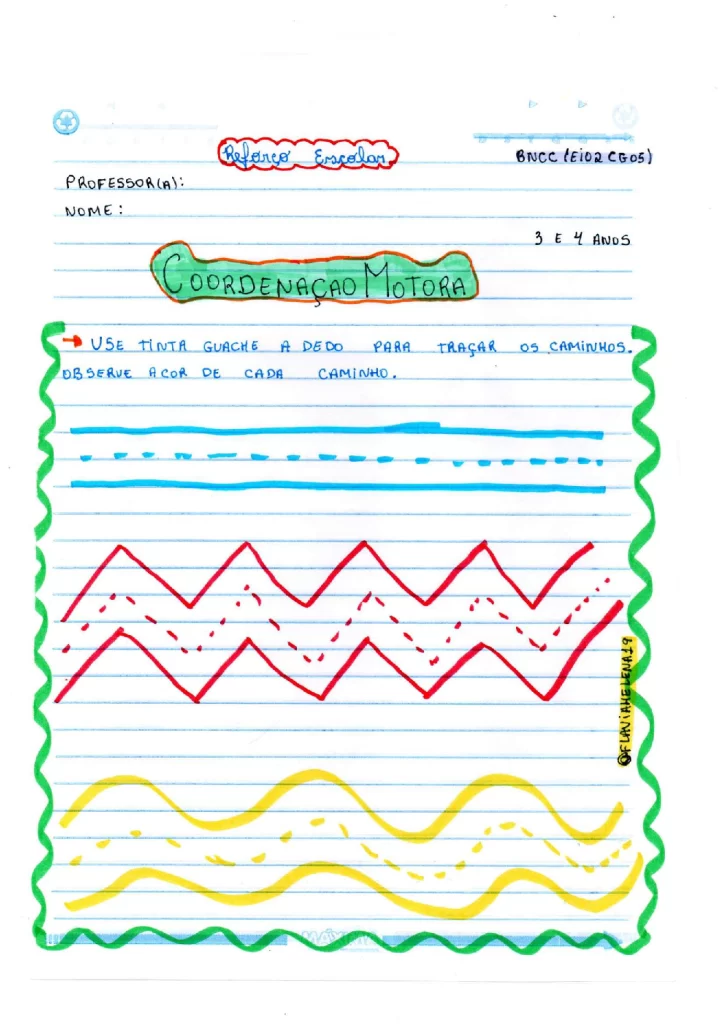 Reforço Escolar
BNCC (EI02CG05)
PROFESSOR(A):
NOME:
3 E 4 ANOS
COORDENAÇAO MOTORA
→ USE TINTA GUACHE A DEDO PARA TRAÇAR OS CAMINHOS.
OBSERVE A COR DE CADA CAMINHO.
@FLAVIAHELENA19